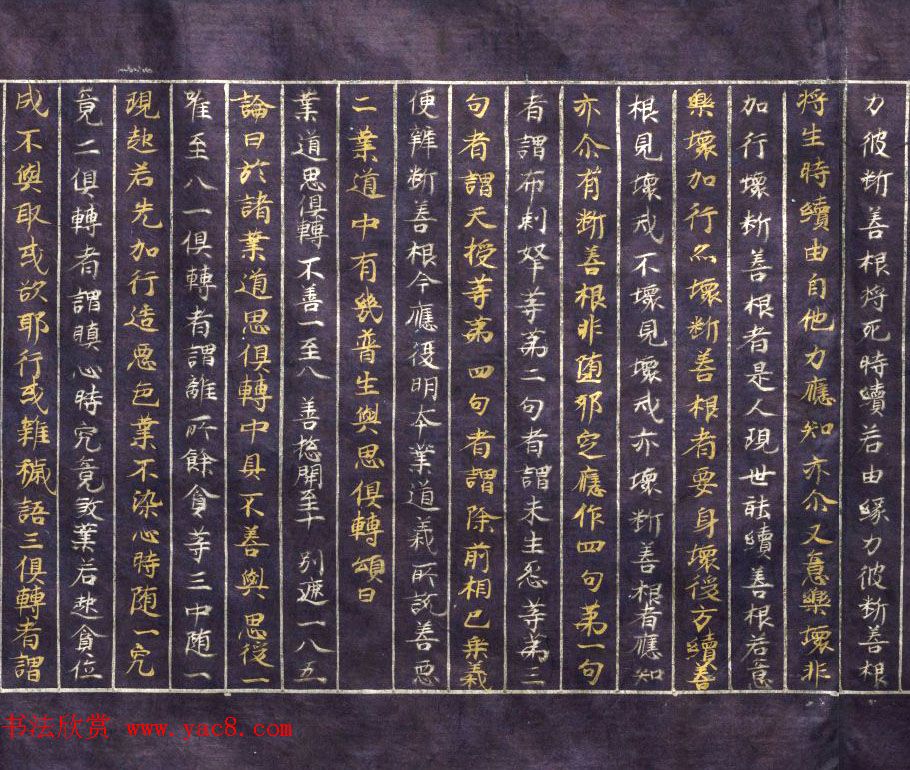 力彼断善根将死時續若由緣力彼断善根
将生時續由自他力應知亦尒又意樂壞非
加行壞断善根者是人現世能續善根若意
樂壞加行亦壞断善根者要身壞後方續善
根見壞戒不壞見壞戒亦壞断善根者應知
亦尒有断善根非堕邪定應作四句第一句
者謂布剌拏等第二句者謂未生怨等第三
句者謂天授等第四句者謂除前相已乗義
便辨断善根今應復明本業道義所説善悪
二業道中有幾普生與思俱轉頌曰
業道思俱轉 不善一至八 善揔開至十 別遮一八五
論曰於諸業道思俱轉中且不善與思從一
唯至八一俱轉者謂離所餘貪等三中随一
現起若先加行造悪色業不染心時随一究
竟二俱轉者謂瞋心時究竟煞業若起貪位
成不與取或欲耶行或雜穢語三俱轉者謂
书法欣赏 www.yac8.com